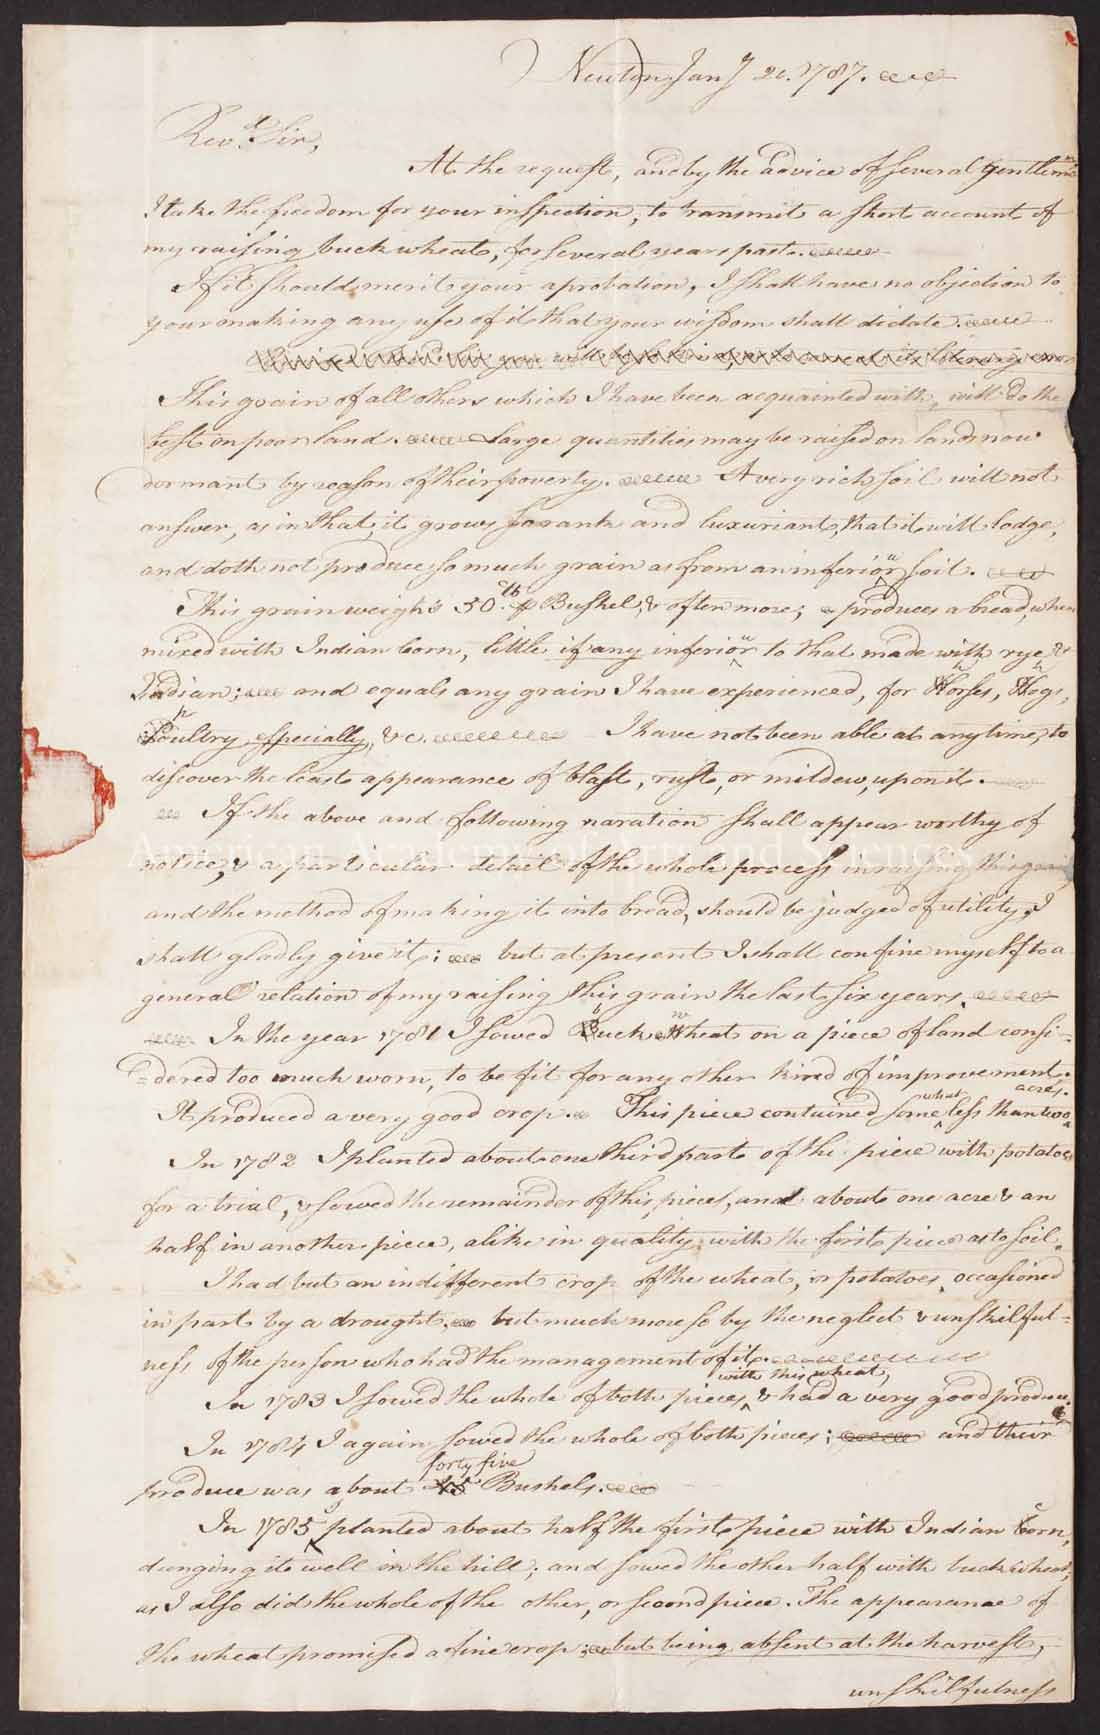 Newton Jany 20. 1787.
Revd. Sir,
At the request, and by the advice of several gentlemen
I take the freedom for your inspection, to transmit a short account of
my raising buck wheat, for several years past.
If it should merit your aprobation, I shall have no objection to
your making any use of it that your wisdom shall dictate.
This grain of all others which I have been acquainted with, will do the
best on poor land. Large quantities may be raised on lands now
dormant by reason of their poverty. A very rich soil will not
answer, as in that, it grows so rank and luxuriant, that it will lodge,
and doth not produce so much grain as from an inferiour soil.
This grain weighs 50 lb. pr Bushel, & often more; produces a bread, when
mixed with Indian corn, little if any inferiour to that made with rye &
Indian; and equals any grain I have experienced, for horses, hogs,
poultry especially, &c. I have not been able at any time, to
discover the least appearance of blast, rust, or mildew, upon it.
If the above and following naration shall appear worthy of
American Academy of Arts and Sciences
notice, & a particular detail of the whole process in raising this grain
and the method of making it into bread, should be judged of utility, I
shall gladly give it; but at present I shall confine myself to a
general relation of my raising this grain the last six years.
In the year 1781 I sowed buck wheat on a piece of land consi-
-dered too much worn, to be fit for any other kind of improvement.
It produced a very good crop. This piece contained somewhat less than two acres.
In 1782 I planted about one third part of the piece with potatoes
for a trial, & sowed the remainder of this piece, and about one acre & an
half in another piece, alike in quality with the first piece as to soil.
I had but an indifferent crop of the wheat, or potatoes, occasioned
in part by a drought, but much more so by the neglect & unskilful-
ness of the person who had the management of it.
In 1783 I sowed the whole of both pieces with this wheat, & had a very good produce.
In 1784 I again sowed the whole of both pieces; and their
produce was about forty five Bushels.
In 1785 I planted about half the first piece with Indian corn,
dunging it well in the hill; and sowed the other half with buck wheat,
as I also did the whole of the other, or second piece. The appearance of
the wheat promised a fine crop; but being absent at the harvest,
unskilfulness